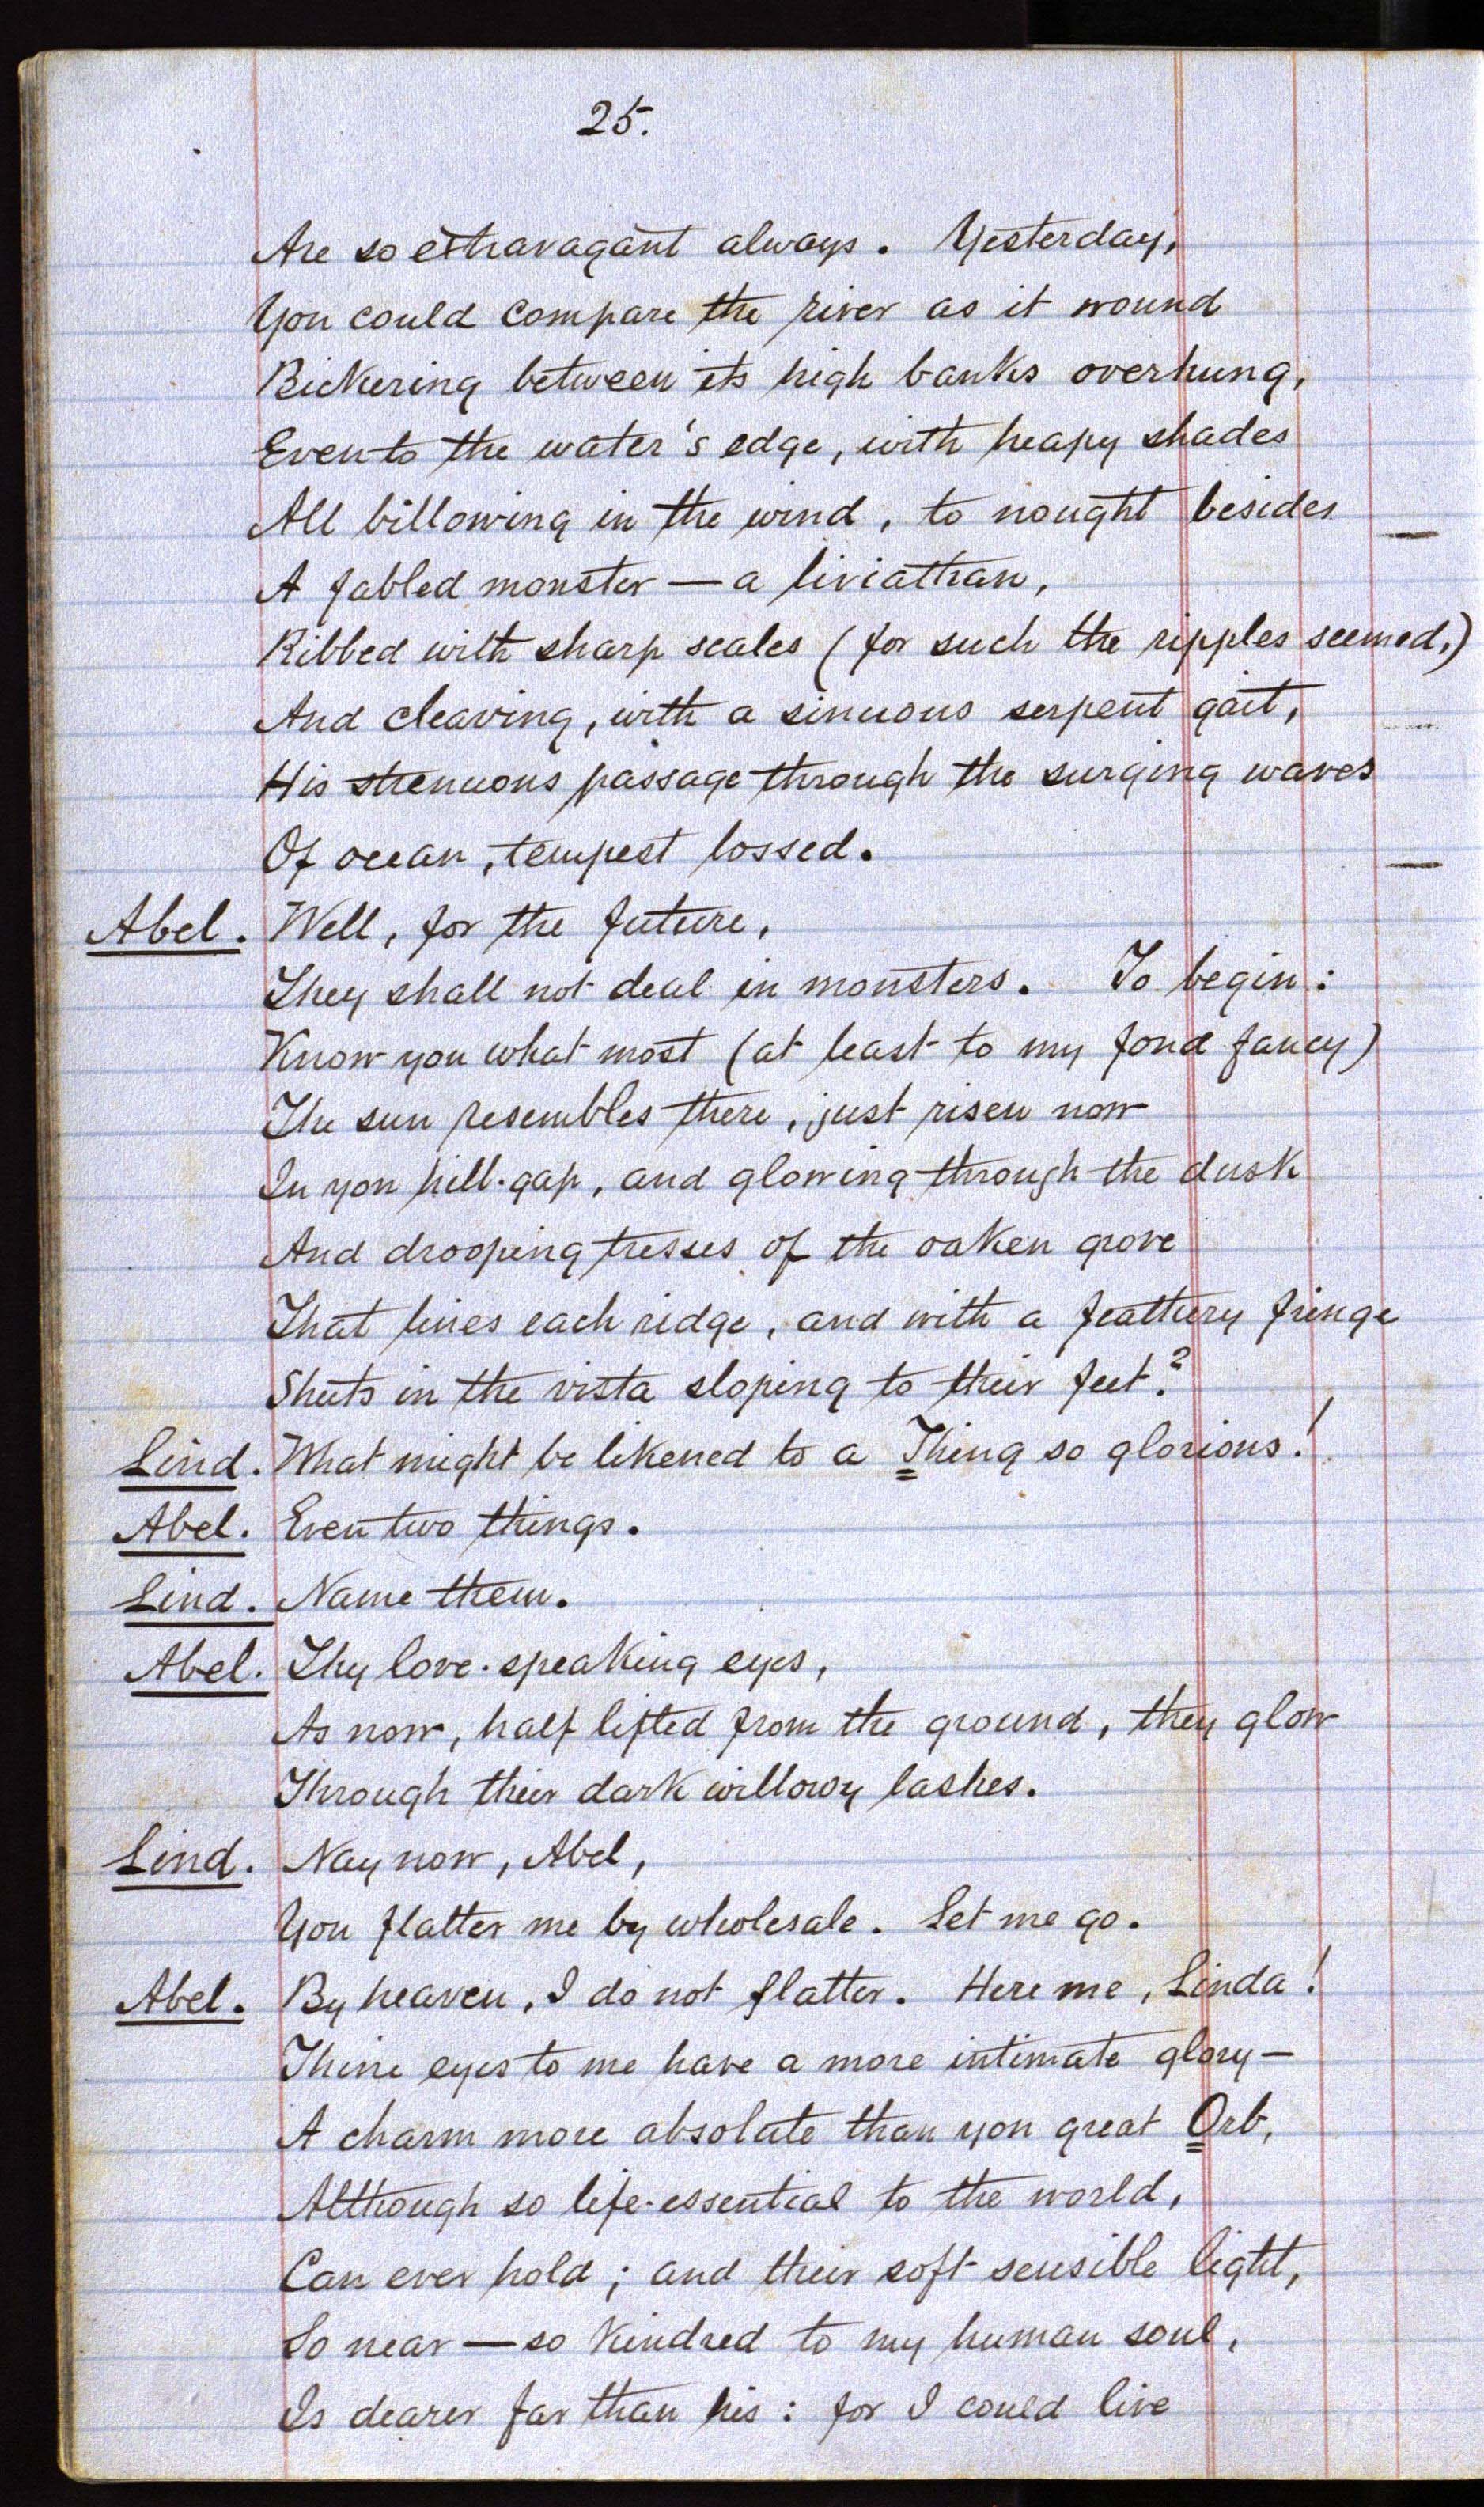 25.
Are so extravagant always. Yesterday,
You could compare the river as it wound
Bickering between its high banks overhung,
Even to the water's edge, with heapy shades
All billowing in the wind, to nought besides
A fabled monster — a liviathan,
Ribbed with sharp scales (for such the ripples seemed,)
And cleaving, with a sinuous serpent gait,
His strenuous passage through the surging waves
Of ocean, tempest tossed.
Abel. Well, for the future,
They shall not deal in monsters. To begin:
Know you what most (at least to my fond fancy)
The sun resembles there, just risen now
In yon hill-gap, and glowing through the dusk
And drooping tresses of the oaken grove
That lines each ridge, and with a feathery fringe
Shuts in the vista sloping to their feet?
Lind. What might be likened to a Thing so glorious!
Abel. Even two things.
Lind. Name them.
Abel. Thy love-speaking eyes,
As now, half lifted from the ground, they glow
Through their dark willowy lashes.
Lind. Nay now, Abel,
You flatter me by wholesale. Let me go.
Abel. By heaven, I do not flatter. Here me, Linda!
Thine eyes to me have a more intimate glory —
A charm more absolute than yon great Orb,
Although so life-essential to the world,
Can ever hold; and their soft sensible light,
So near — so kindred to my human soul,
Is dearer far than his: for I could live